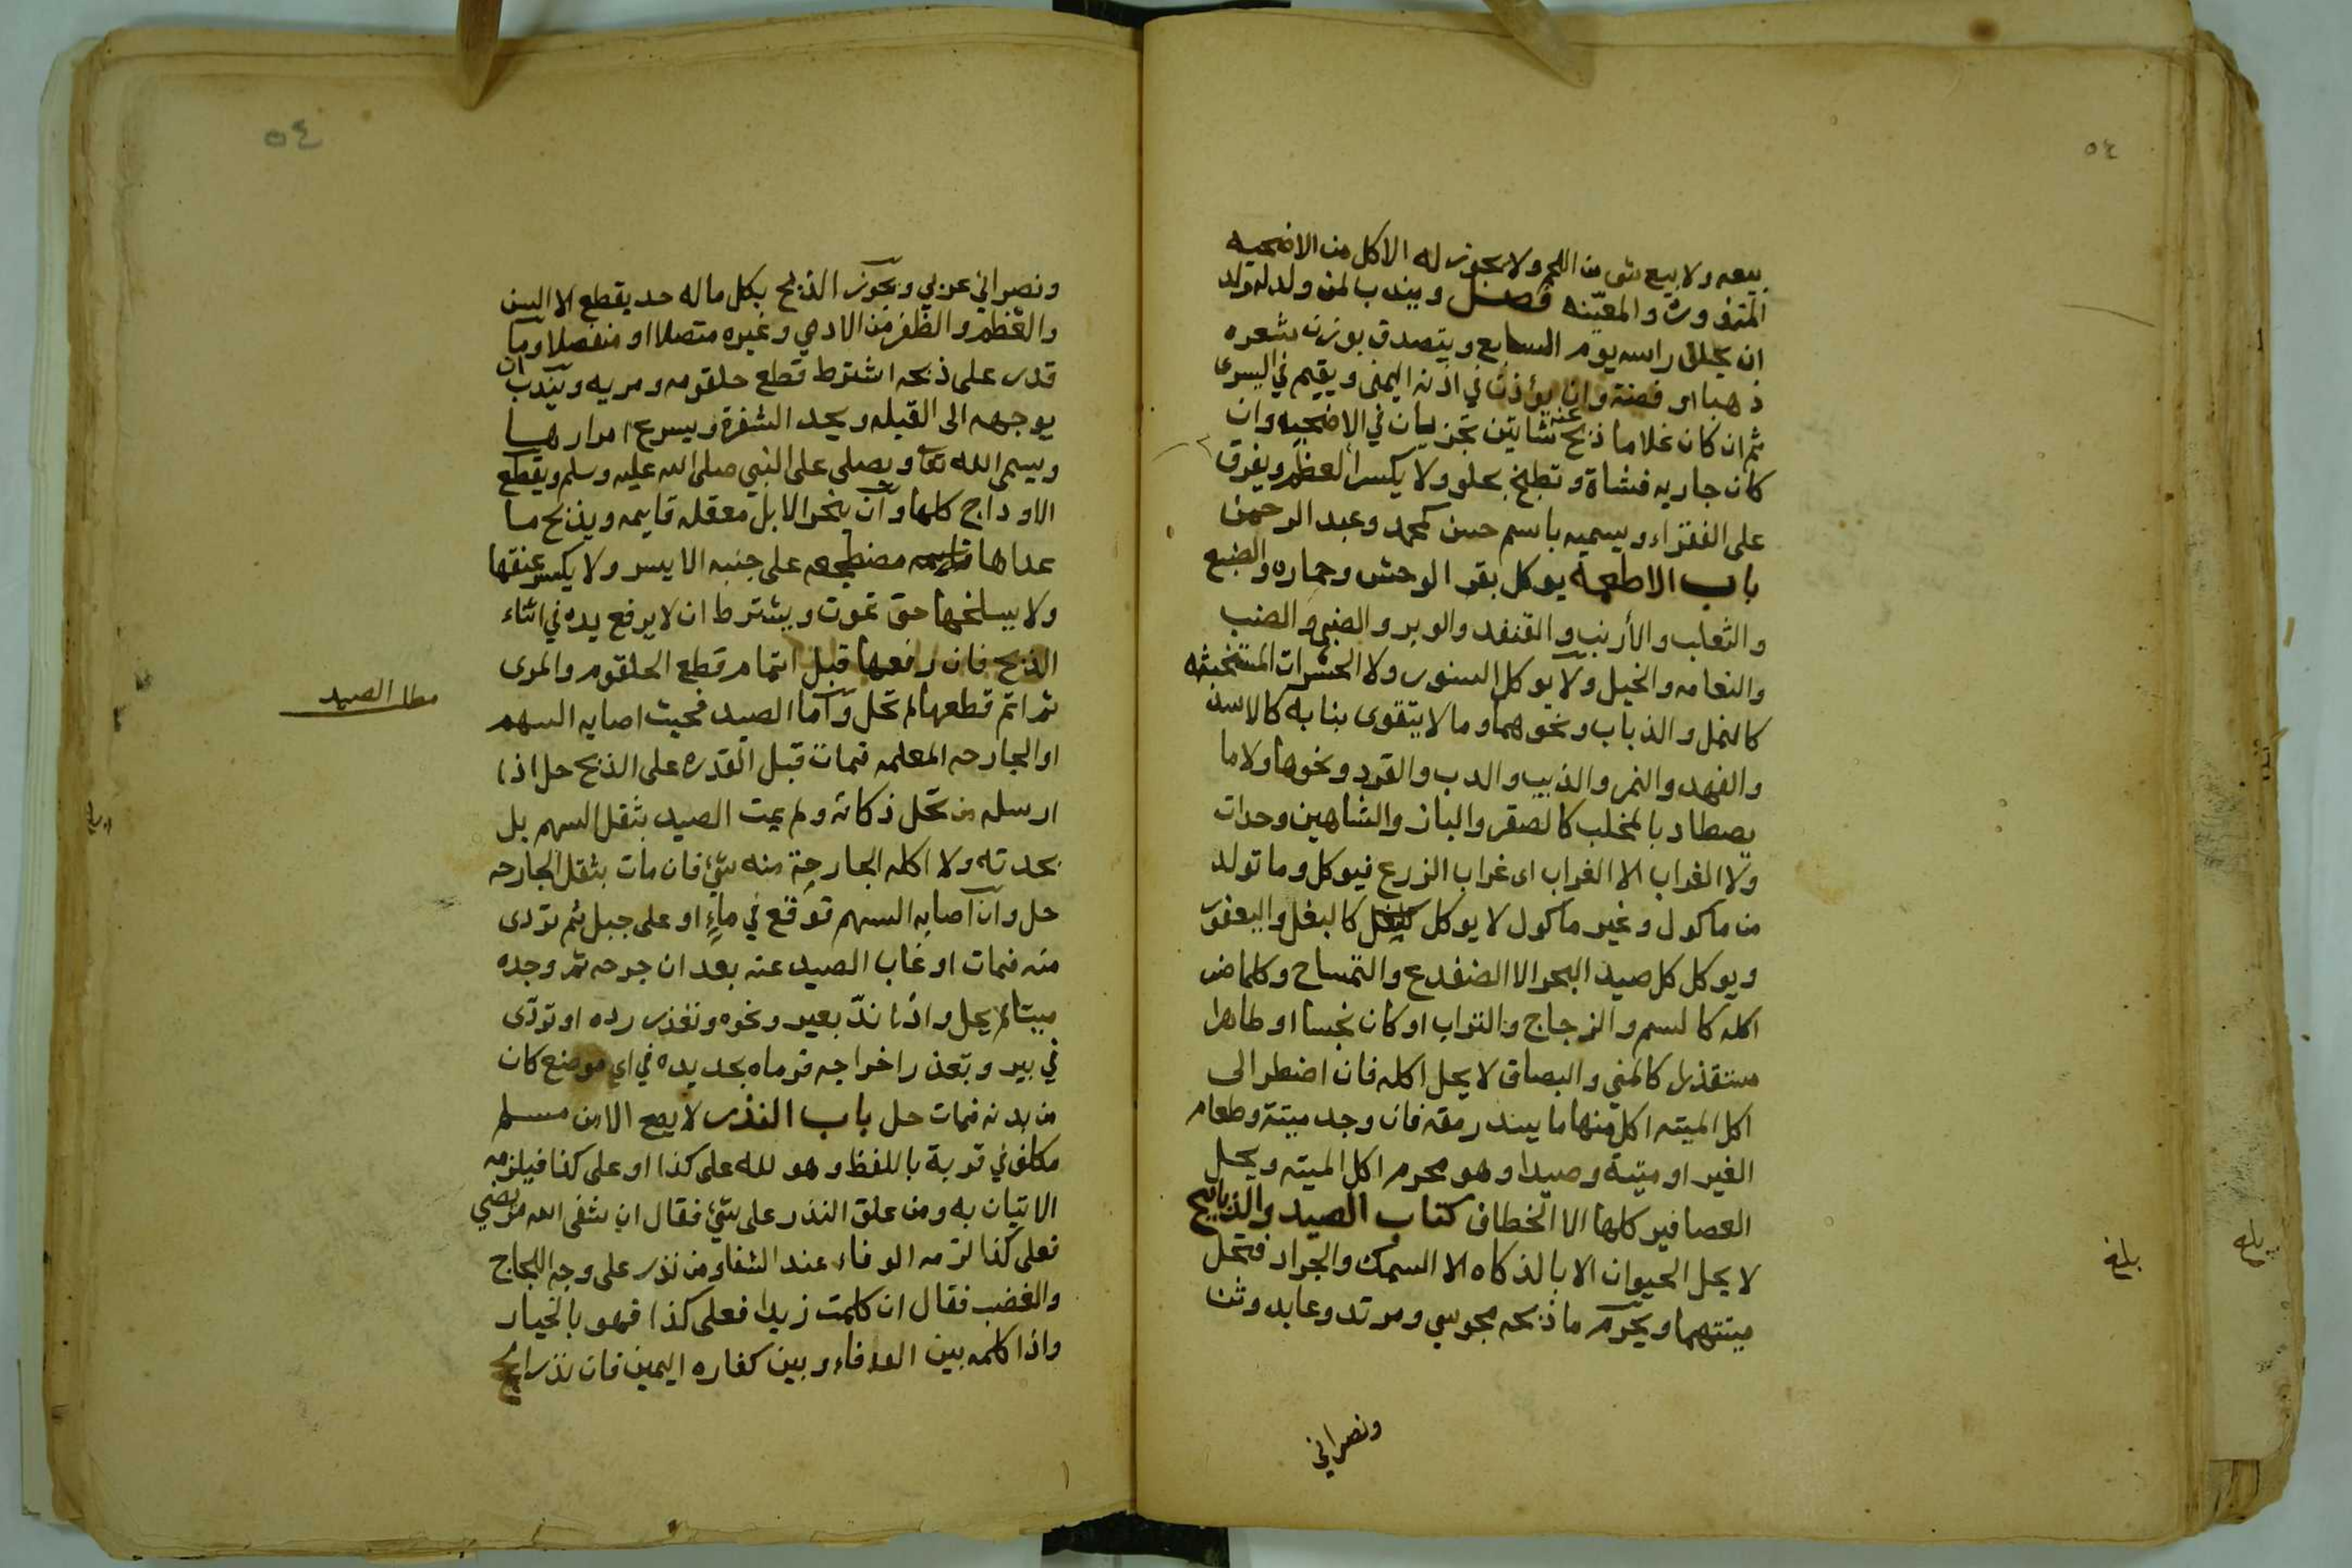 ٥٤
بيعه ولا بيع شي من اللحم ولا يجوز له الاكل من الاضحيه
المنذوره والمعيّنه فصل ويندب لمن ولد له ولد
ان يحلق راسه يوم السابع ويتصدق بوزن شعره
ذهبا او فضة وان يؤذن في اذنه اليمنى ويقيم في اليسرى
ثم ان كان غلاما ذبح عنه شاتين تجزيان في الاضحيه وان
كان جاريه فشاة وتطبخ بحلو ولا يكسر العظم ويفرق
على الفقراء ويسميه باسم حسن كمحمد وعبد الرحمن
باب الاطعمة يوكل بقر الوحش وحماره والضبع
والثعلب والأرنب والقنفد والوبر والضبي والضب
والنعامه والخيل ولا يوكل السنور ولا الحشرات المستخبثه
كالنمل والذباب ونحوهما وما لا يتقوى بنابه كالاسد
والفهد والنمر والذيب والدب والقرد ونحوها ولا ما
يصطاد بالمخلب كالصقر والباز والشاهين وحدات
ولا الغراب الا الغراب اى غراب الزرع فيوكل وما تولد
من ماكول وغير ماكول لا يوكل كالبغل واليعفور
ويوكل كل صيد البحر الا الضفدع والتمساح وكلما ضر
اكله كالسم والزجاج والتراب او كان نجسا او طاهرا
مستقذرا كالمني والبصاق لا يحل اكله فان اضطر الى
اكل الميته اكل منها ما يسد رمقه فان وجد ميتة وطعام
الغير او ميتة وصيدا وهو محرم اكل الميته ويحل
العصافير كلها الا الخطاف كتاب الصيد والذبايح
لا يحل الحيوان الا بالذكاه الا السمك والجراد فتحل
ميتتهما ويحرم ما ذبحه مجوسي ومرتد وعابد وثن
ونصراني
بلغ
بلغ
٥٤
ونصراني عربي ويجوز الذبح بكل ما له حد يقطع الا السن
والعظم والظفر من الادمي وغيره متصلا او منفصلا وما
قدر على ذبحه اشترط قطع حلقومه ومريه ويندب ان
يوجهه الى القبله ويحد الشفرة ويسرع امرارها
ويسمى الله تعا ويصلى على النبي صلى الله عليه وسلم ويقطع
الاوداج كلها وان ينحر الابل معقله قايمه ويذبح ما
عداها مضطجعه على جنبه الايسر ولا يكسر عنقها
ولا يسلخها حتى تموت ويشترط ان لا يرفع يده في اثناء
الذبح فان رفعها قبل اتمام قطع الحلقوم والمرى
ثم اتم قطعها لم تحل وأما الصيد فحيث اصابه السهم
او الجارحه المعلمه فمات قبل القدره على الذبح حل اذا
ارسله من تحل ذكاته ولم يمت الصيد بثقل السهم بل
بحدته ولا اكله الجارحة منه شئ فان مات بثقل الجارحه
حل وان اصابه السهم فوقع في ماءٍ او على جبل ثم تردى
منه فمات او غاب الصيد عنه بعد ان جرحه ثم وجده
ميتا لم يحل واذا ندّ بعير ونحوه وتعذر رده او تردّى
في بير وتعذر اخراجه فرماه بحديده في اي موضع كان
من بدنه فمات حل باب النذر لا يصح الا من مسلم
مكلف في قربة باللفظ وهو لله على كذا او على كذا فيلزمه
الاتيان به ومن علق النذر على شئ فقال ان شفى الله مريضي
فعلى كذا لزمه الوفاء عند الشفا ومن نذر على وجه اللجاج
والغضب فقال ان كلمت زيدا فعلى كذا فهو بالخيار
واذا كلمه بين الوفاء وبين كفاره اليمين فان نذر الحج
مطا الصيد